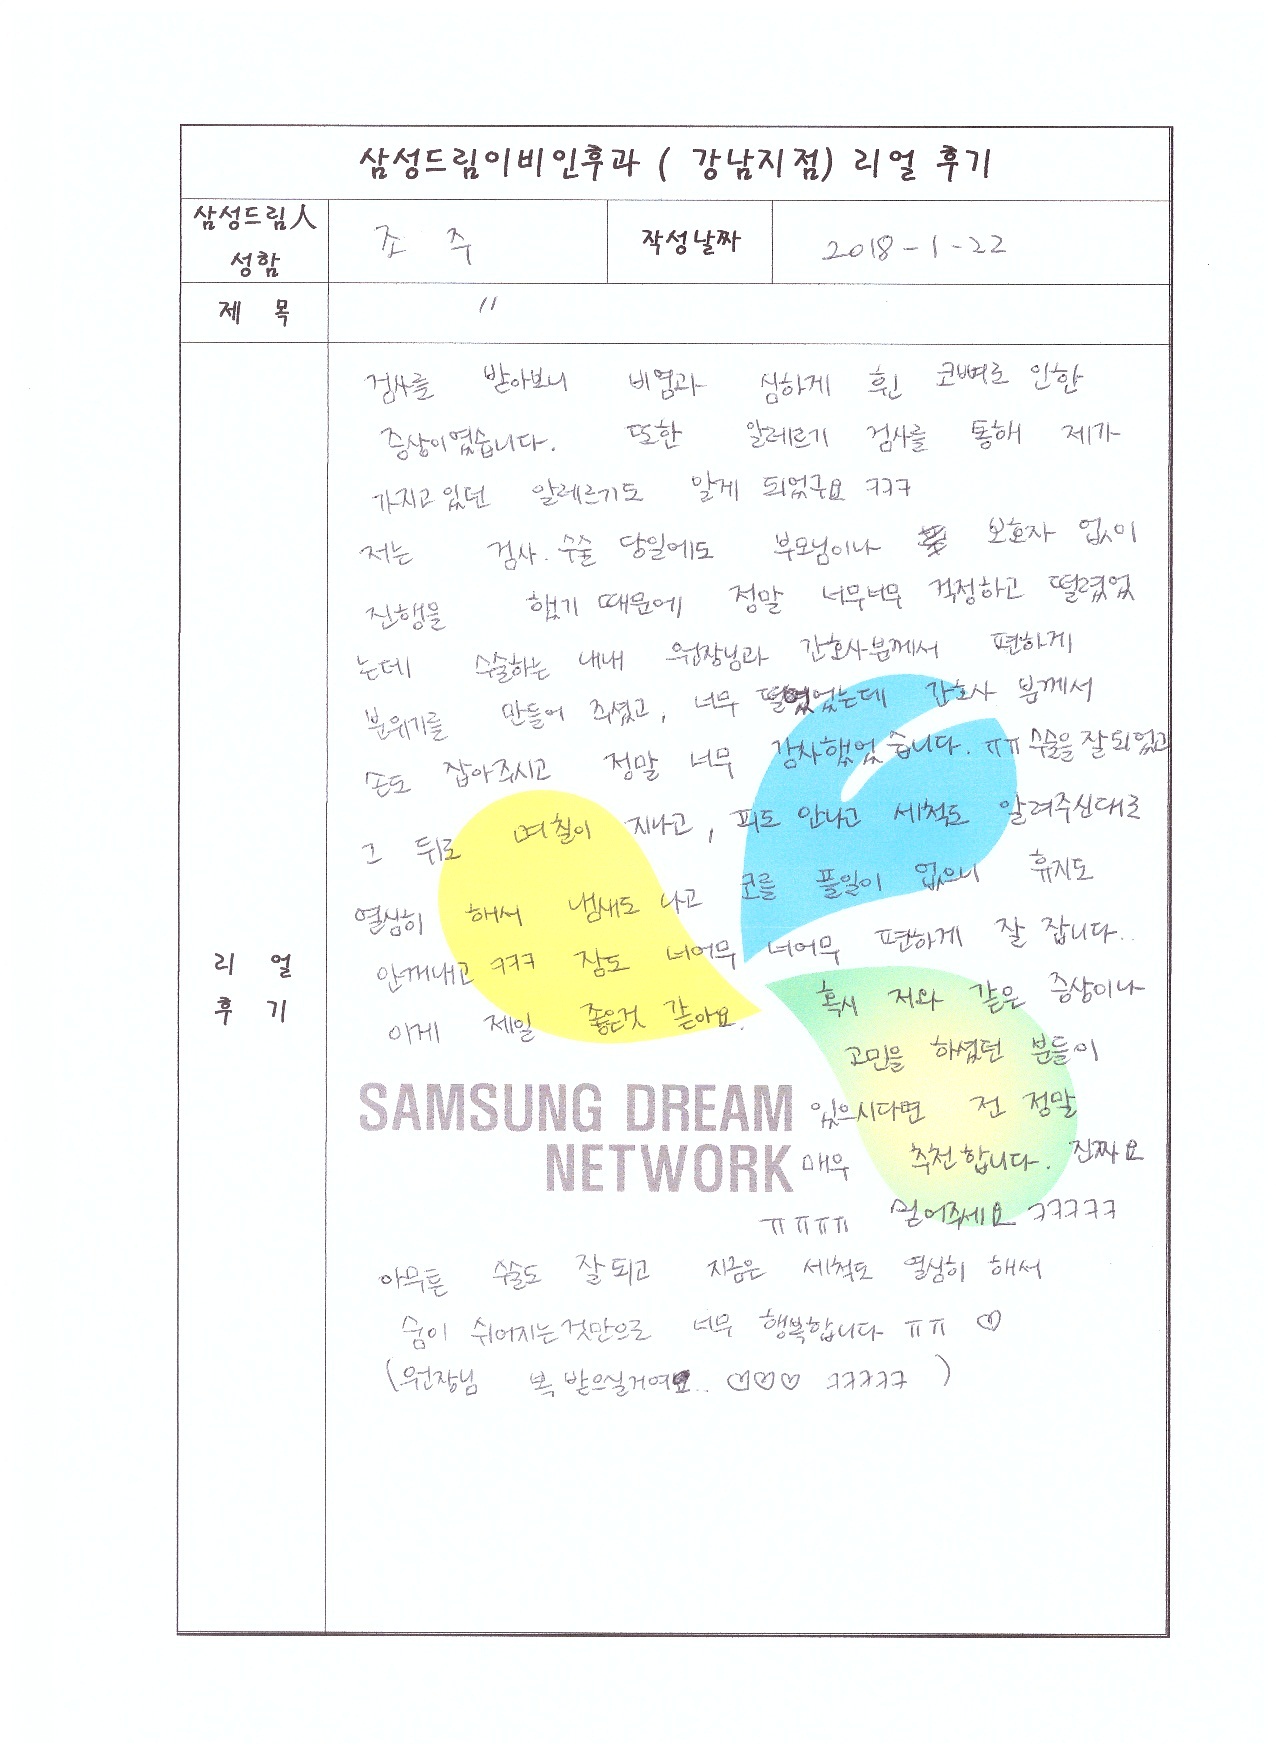 삼성드림이비인후과 ( 강남지점) 리얼 후기
삼성드림人 성함 조 주 작성날짜 2018-1-22
제 목 "
검사를 받아보니 비염과 심하게 휜 코뼈로 인한
증상이였습니다. 또한 알레르기 검사를 통해 제가
가지고 있던 알레르기도 알게 되었구요 ㅋㅋㅋ
저는 검사.수술 당일에도 부모님이나 보호자 없이
진행을 했기 때문에 정말 너무너무 걱정하고 떨렸었
는데 수술하는 내내 원장님과 간호사분께서 편하게
분위기를 만들어 주셨고, 너무 떨렸었는데 간호사 분께서
손도 잡아주시고 정말 너무 감사했었습니다. ㅠㅠ 수술을 잘되었고
그 뒤로 며칠이 지나고, 피도 안나고 세척도 알려주신대로
열심히 해서 냄새도 나고 코를 풀일이 없으니 휴지도
안꺼내고 ㅋㅋㅋ 잠도 너어무 너어무 편하게 잘 잡니다..
이게 제일 좋은것 같아요. 혹시 저와 같은 증상이나
고민을 하셨던 분들이
SAMSUNG DREAM 있으시다면 전 정말
NETWORK 매우 추천합니다. 진짜요
ㅠㅠㅠㅠ 믿어주세요 ㅋㅋㅋㅋㅋ
리 얼
후 기
아무튼 수술도 잘되고 지금은 세척도 열심히 해서
숨이 쉬어지는것만으로 너무 행복합니다 ㅠㅠ ♡
(원장님 복 받으실거여요.. ♡♡♡ ㅋㅋㅋㅋㅋ )